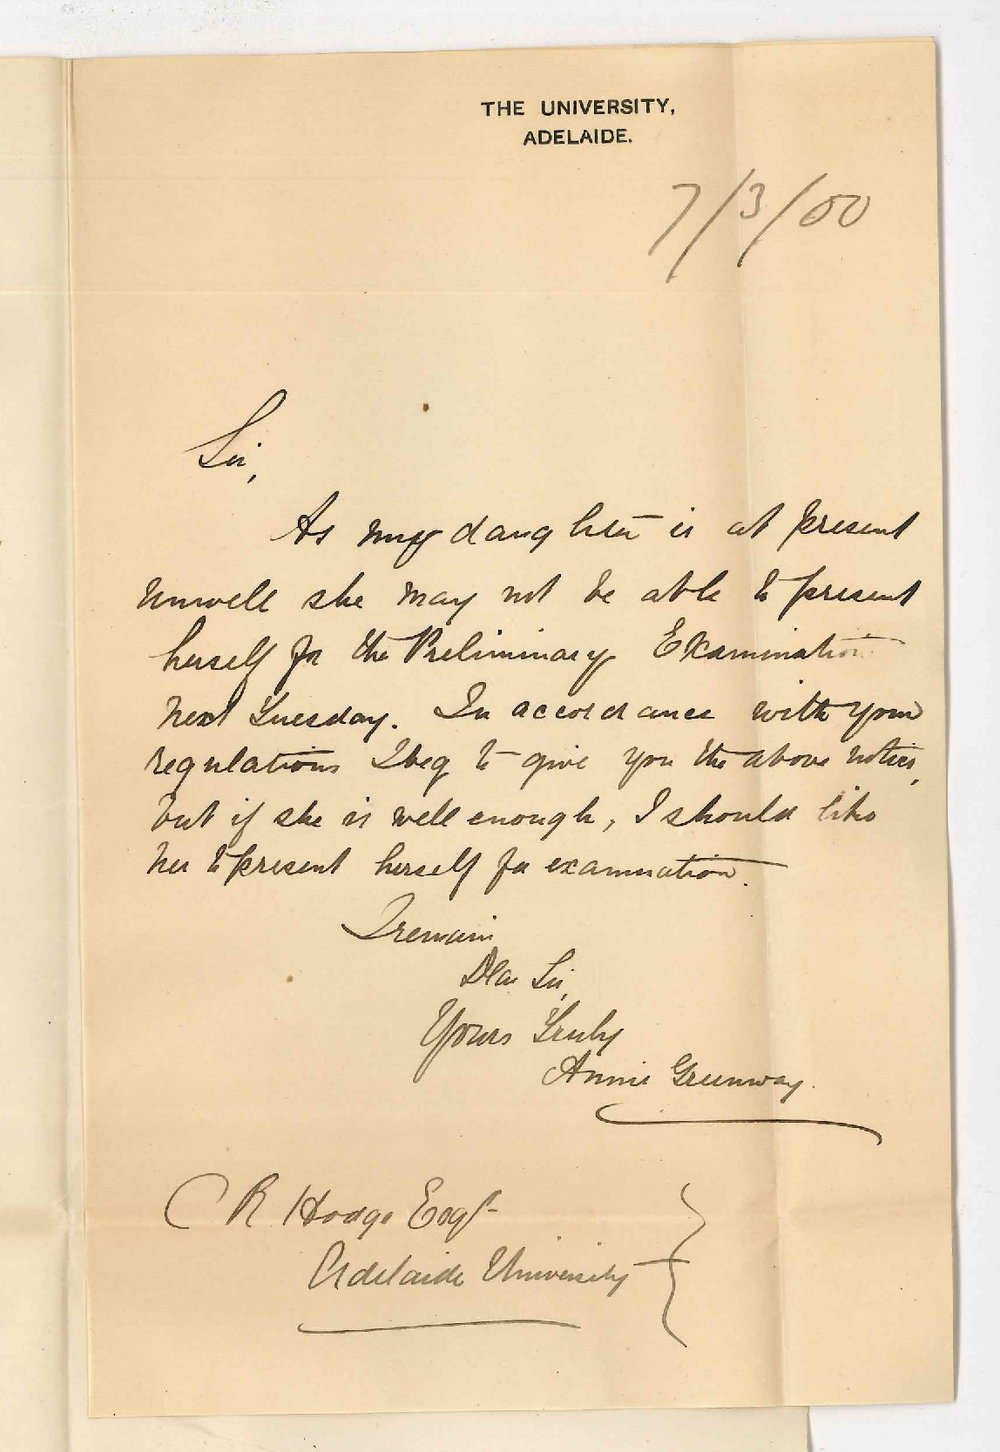 THE UNIVERSITY,
ADELAIDE.
7/3/00
Sir,
As my daughter is at present
unwell she may not be able to present
herself for the Preliminary Examination
next Tuesday. In accordance with your
regulations I beg to give you the above notice,
but if she is well enough, I should like
her to present herself for examination.
I remain
Dear Sir,
Yours Truly
Annie Greenway.
C R Hodge Esqr
Adelaide University